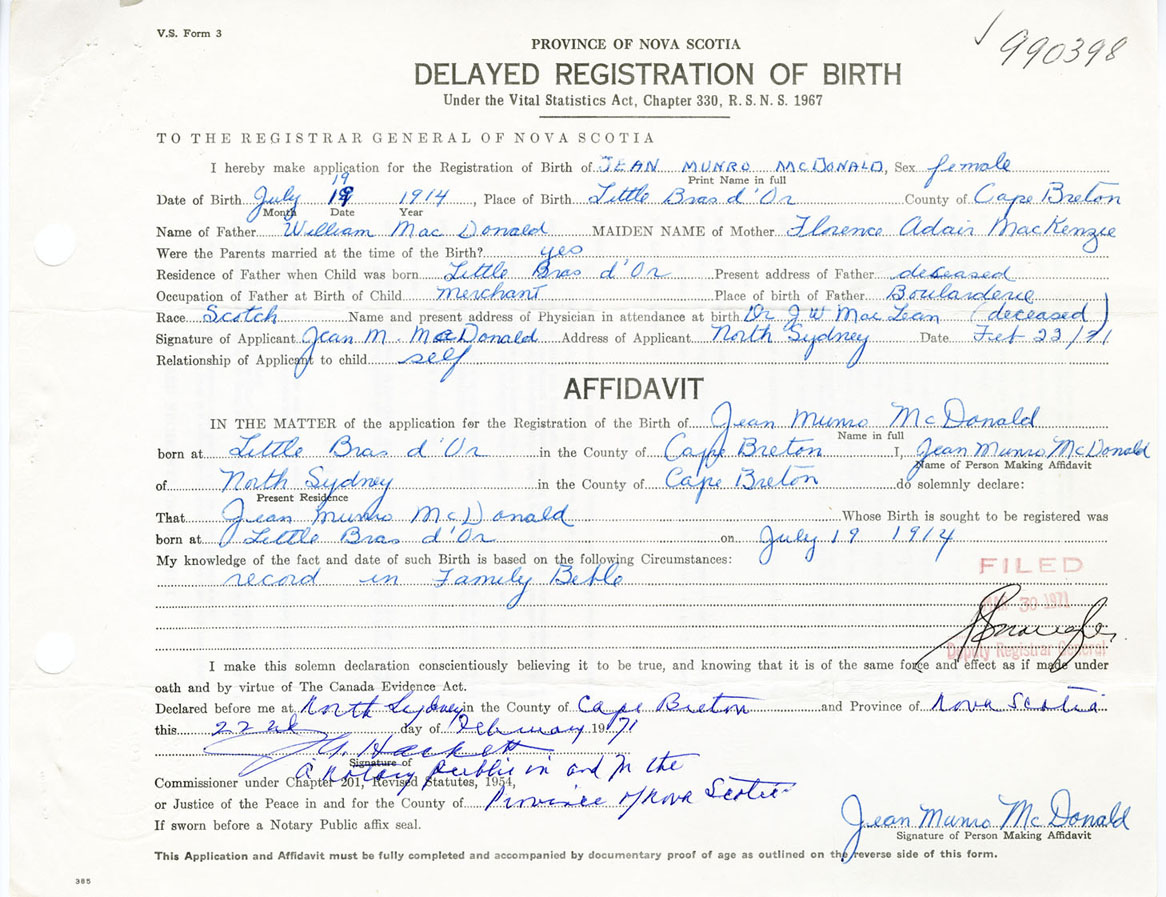 V.S. Form 3
990398
PROVINCE OF NOVA SCOTIA
DELAYED REGISTRATION OF BIRTH
Under the Vital Statistics Act, Chapter 330, R.S.N.S. 1967
TO THE REGISTRAR GENERAL OF NOVA SCOTIA
I hereby make application for the Registration of Birth of JEAN MUNRO McDONALD, Sex female
Print Name in full
19
Date of Birth July 19 1914, Place of Birth Little Bras d'Or County of Cape Breton
Month Date Year
Name of Father William MacDonald MAIDEN NAME of Mother Florence Adair MacKenzie
Were the Parents married at the time of the Birth? yes
Residence of Father when Child was born Little Bras d'Or Present address of Father deceased
Occupation of Father at Birth of Child merchant Place of birth of Father Boularderie
Race Scotch Name and present address of Physician in attendance at birth Dr J W MacLean (deceased)
Signature of Applicant Jean M. McDonald Address of Applicant North Sydney Date Feb 22/71
Relationship of Applicant to child self
AFFIDAVIT
IN THE MATTER of the application for the Registration of the Birth of Jean Munro McDonald
Name in full
born at Little Bras d'Or in the County of Cape Breton I, Jean Munro McDonald
Name of Person Making Affidavit
of North Sydney in the County of Cape Breton do solemnly declare:
Present Residence
That Jean Munro McDonald Whose Birth is sought to be registered was
born at Little Bras d'Or on July 19 1914
My knowledge of the fact and date of such Birth is based on the following Circumstances:
record in Family Bible
FILED
30 1971
Deputy Registrar General
I make this solemn declaration conscientiously believing it to be true, and knowing that it is of the same force and effect as if made under
oath and by virtue of The Canada Evidence Act.
Declared before me at North Sydney in the County of Cape Breton and Province of Nova Scotia
this 22nd day of February 1971
Hackett
Signature of
A Notary Public in and for the
Commissioner under Chapter 201, Revised Statutes, 1954,
or Justice of the Peace in and for the County of Province of Nova Scotia
If sworn before a Notary Public affix seal.
Jean Munro McDonald
Signature of Person Making Affidavit
This Application and Affidavit must be fully completed and accompanied by documentary proof of age as outlined on the reverse side of this form.
385